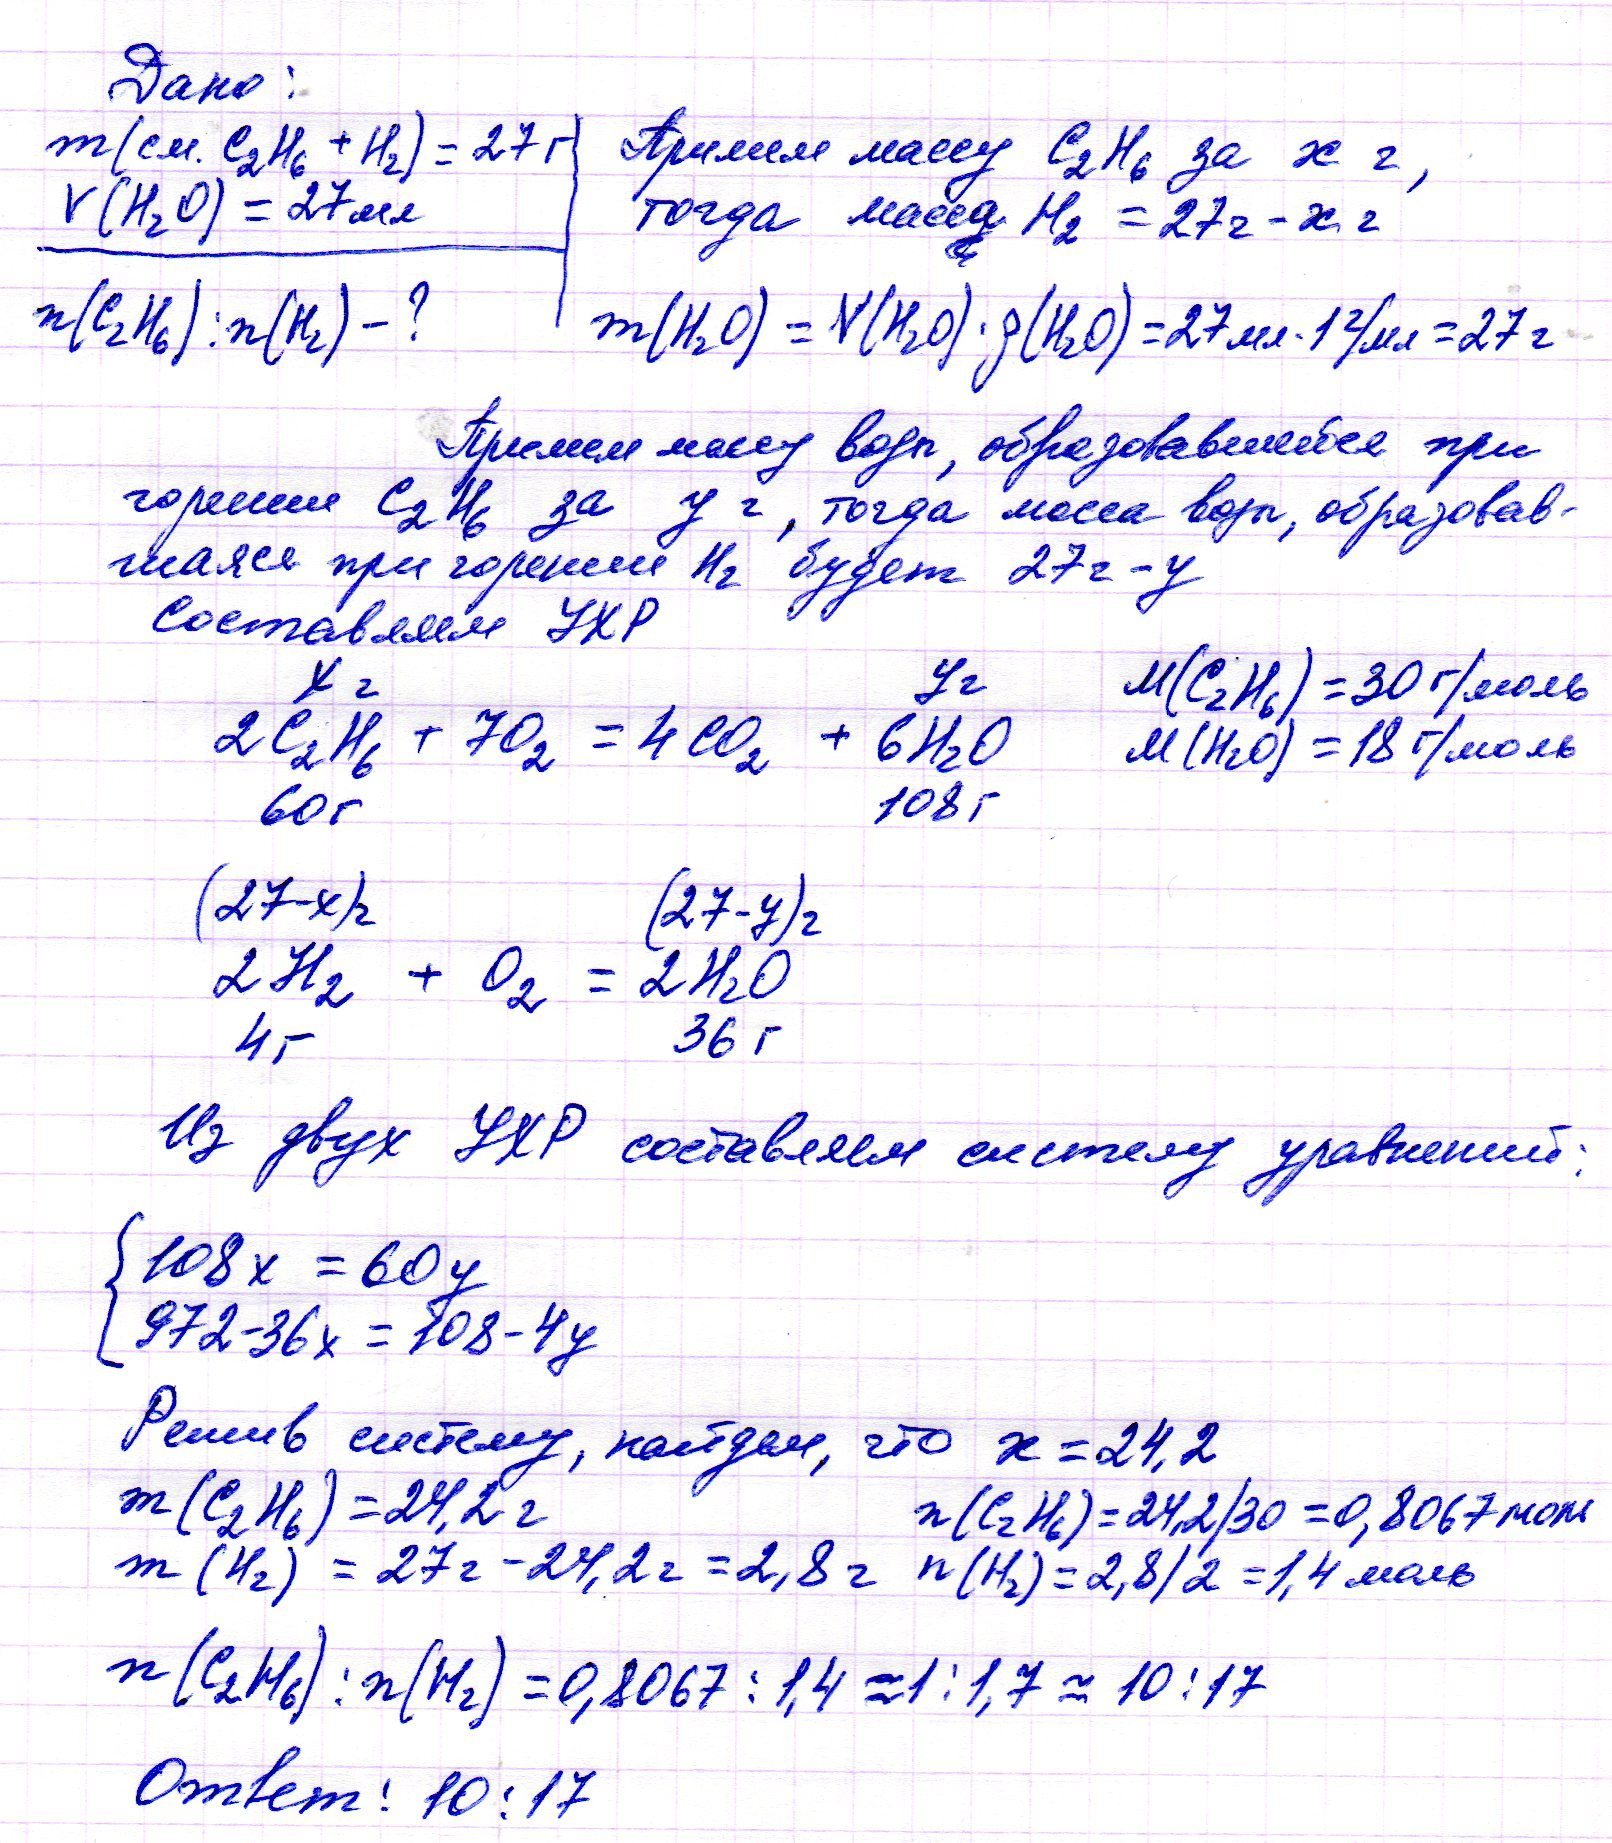 Дано:
m(см. C₂H₆ + H₂) = 27 г
V(H₂O) = 27 мл
n(C₂H₆) : n(H₂) - ?
Примем массу C₂H₆ за x г,
тогда масса H₂ = 27г - x г
m(H₂O) = V(H₂O)·ρ(H₂O) = 27 мл · 1 г/мл = 27 г
Примем массу воды, образовавшейся при
горении C₂H₆ за y г, тогда масса воды, образовав-
шаяся при горении H₂ будет 27г - y
Составляем УХР
x г y г M(C₂H₆) = 30 г/моль
2C₂H₆ + 7O₂ = 4CO₂ + 6H₂O M(H₂O) = 18 г/моль
60г 108г
(27-x)г (27-y)г
2H₂ + O₂ = 2H₂O
4г 36 г
Из двух УХР составляем систему уравнений:
108x = 60y
972-36x = 108-4y
Решив систему, найдем, что x = 24,2
m(C₂H₆) = 24,2 г n(C₂H₆) = 24,2/30 = 0,8067 моль
m(H₂) = 27г - 24,2г = 2,8 г n(H₂) = 2,8/2 = 1,4 моль
n(C₂H₆) : n(H₂) = 0,8067 : 1,4 ≈ 1 : 1,7 ≈ 10 : 17
Ответ: 10 : 17